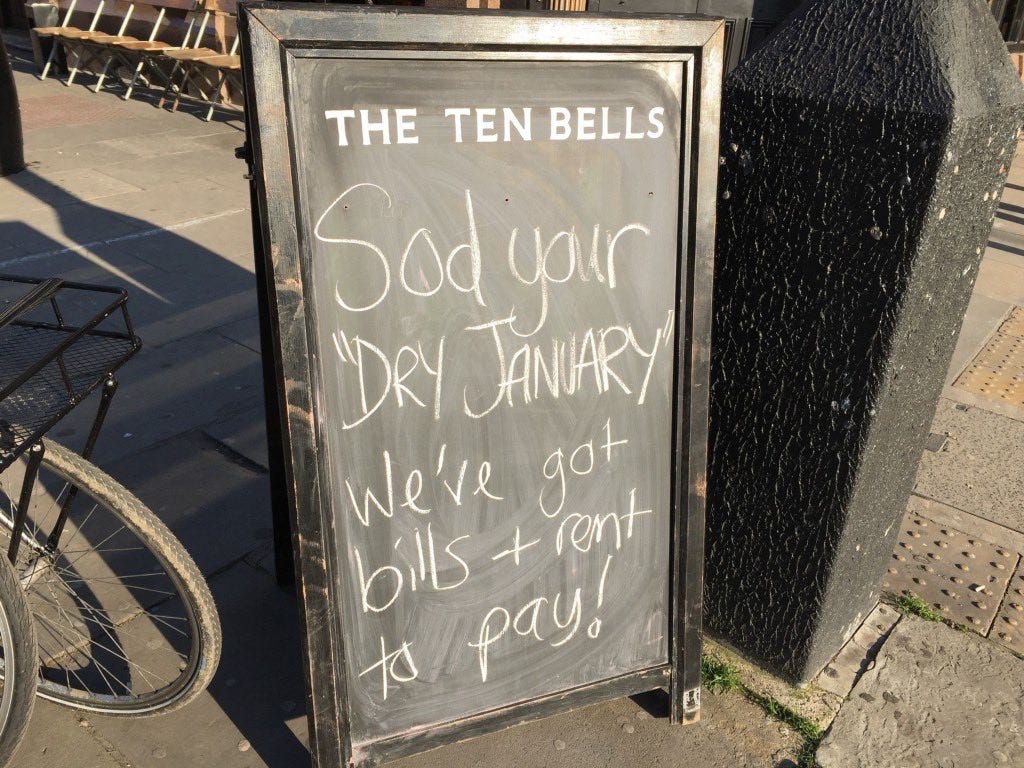 THE TEN BELLS
Sod your
"DRY JANUARY"
We've got
bills + rent
to pay!